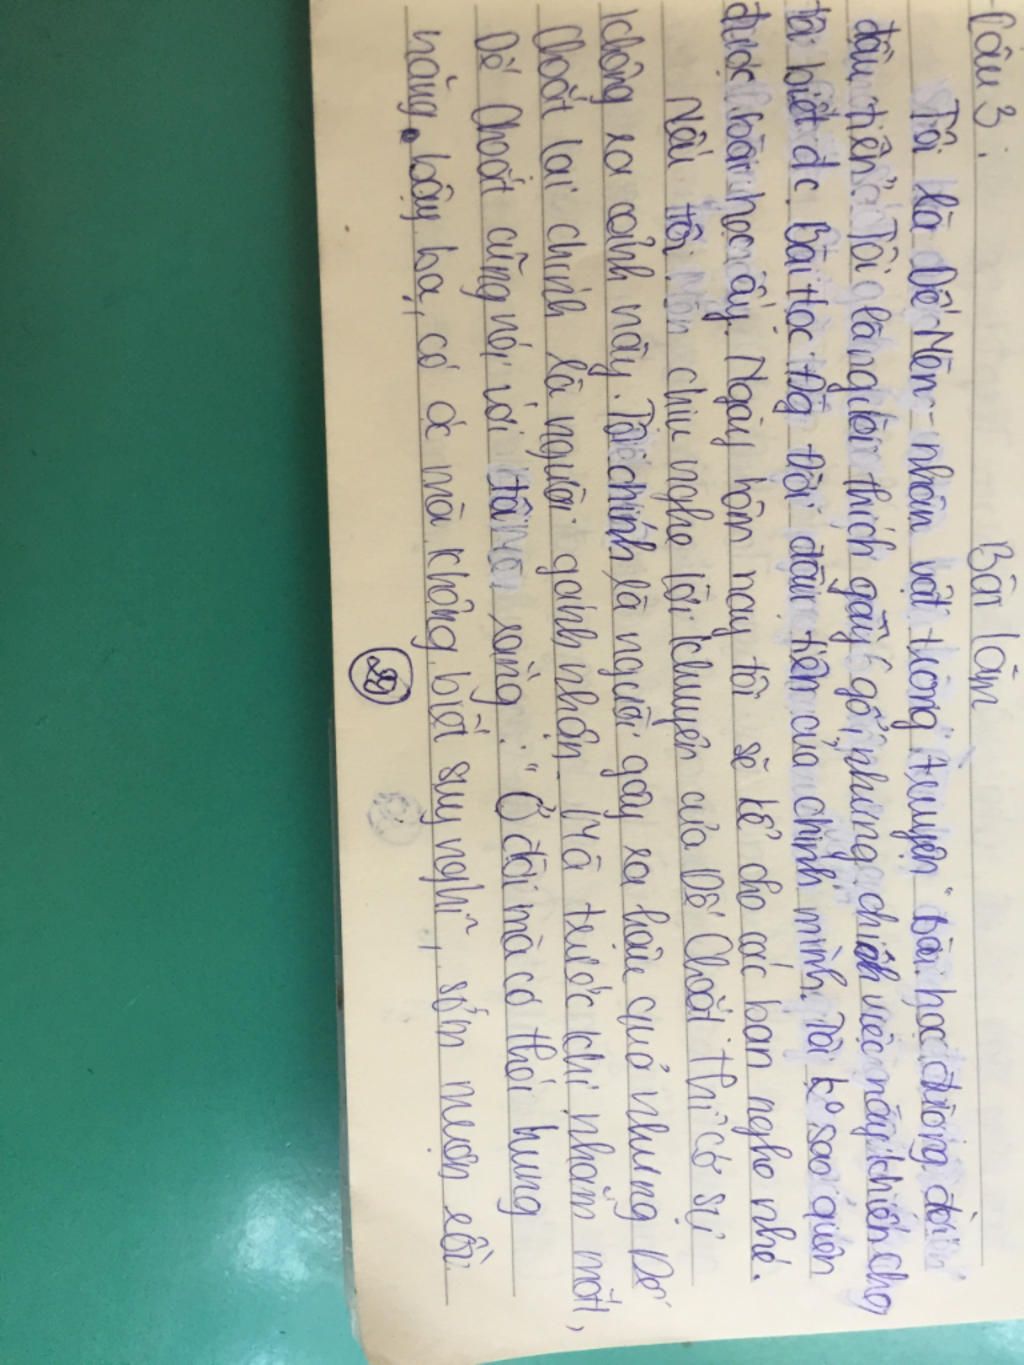 Câu 3:
Bài làm
Tôi là Dế Mèn - nhân vật trong truyện "Bài học đường đời
đầu tiên". Tôi là người thích gây gổ, nhưng chính việc này khiến cho
tôi biết đc Bài học đg đời đầu tiên của chính mình. Tôi ko sao quên
được bài học ấy. Ngày hôm nay tôi sẽ kể cho các bạn nghe nhé.
Nếu tôi chịu nghe lời khuyên của Dế Choắt thì có sự
không xa cảnh này. Tôi chính là người gây ra hậu quả nhưng Dế
Choắt lại chính là người gánh nhận. Mà trước khi nhắm mắt,
Dế Choắt cũng nói với tôi rằng: "Ở đời mà có thói hung
hăng bậy bạ, có óc mà không biết suy nghĩ, sớm muộn rồi